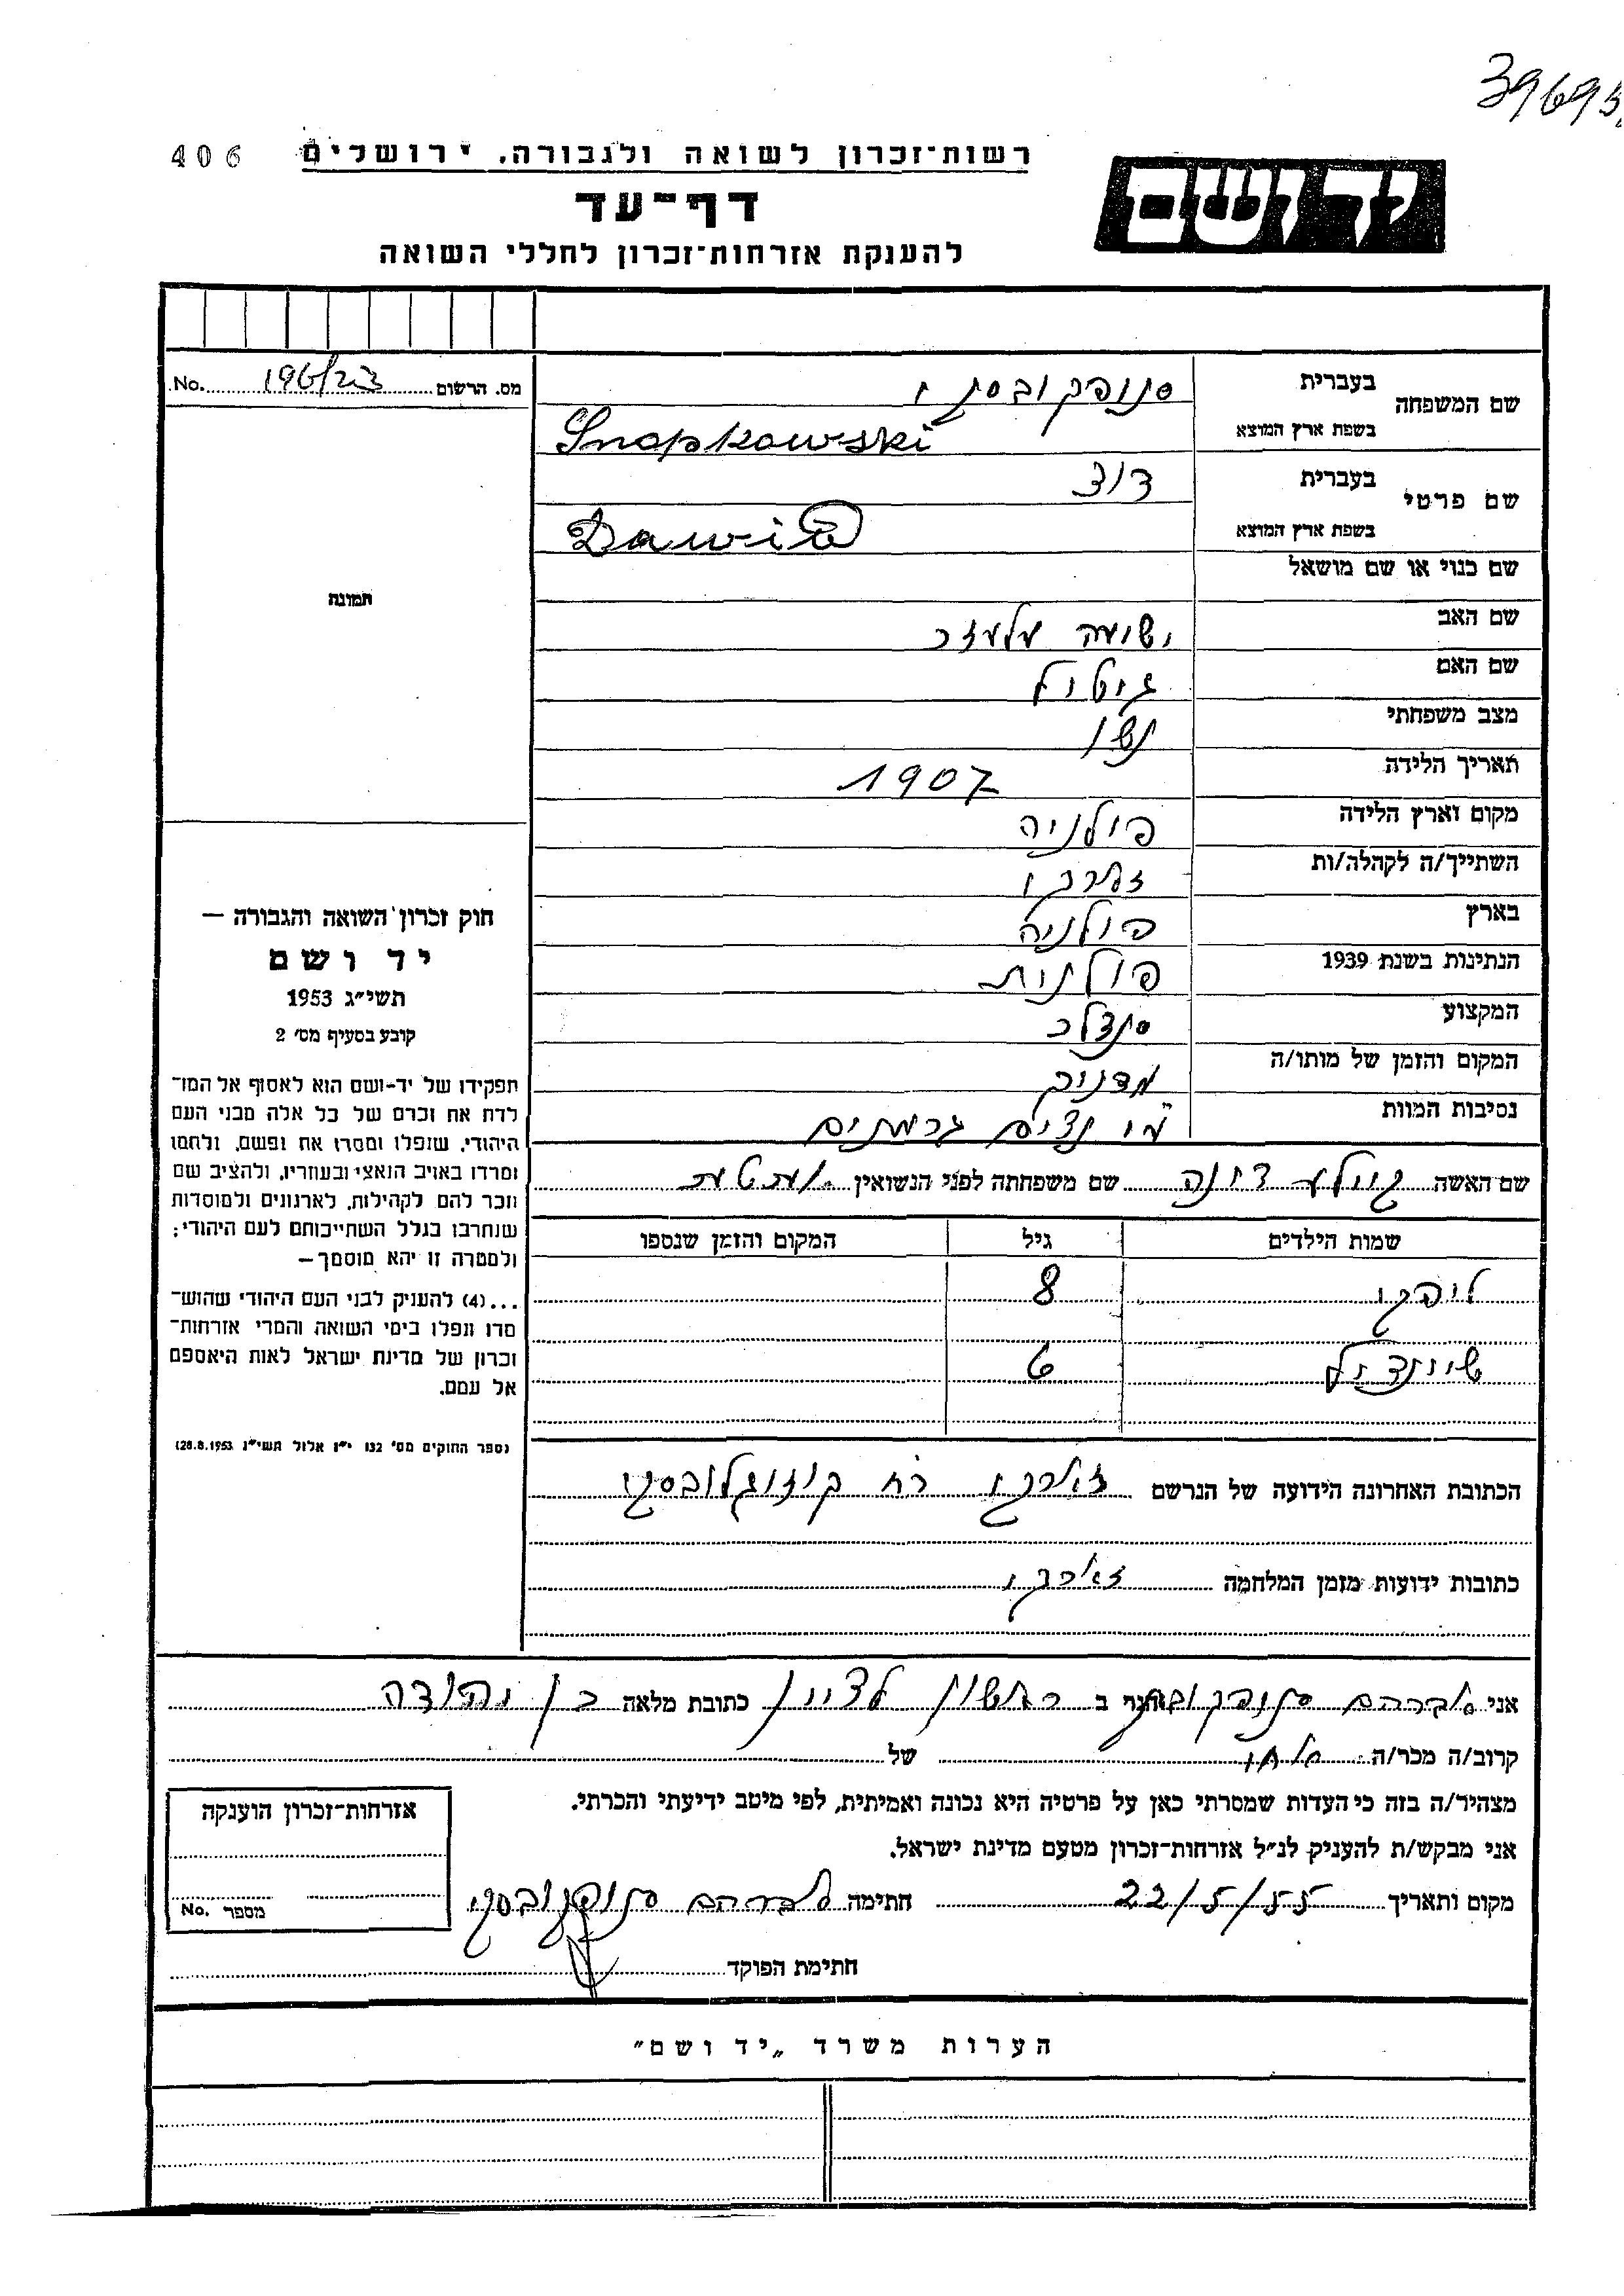 39695
406 רשות־זכרון לשואה ולגבורה, ירושלים
יד ושם
דף־עד
להענקת אזרחות־זכרון לחללי השואה
מס. הרשום 196/23 No.
שם המשפחה
בעברית סנופקובסקי
בשפת ארץ המוצא Snopkowski
שם פרטי
בעברית דוד
בשפת ארץ המוצא Dawid
שם כנוי או שם מושאל
שם האב ישועה
שם האם גיטל
מצב משפחתי נשוי
תאריך הלידה 1907
מקום וארץ הלידה פולניה
השתייך/ה לקהלה/ות זארקי
בארץ פולניה
הנתינות בשנת 1939 פולנית
המקצוע סנדלר
המקום והזמן של מותו/ה
נסיבות המוות ע"י נצים גרמנים
שם האשה דינה שם משפחתה לפני הנשואין
שמות הילדים גיל המקום והזמן שנספו
8
שיינדיל 6
הכתובת האחרונה הידועה של הנרשם זארקי רח קוזוגלובסקי
כתובות ידועות מזמן המלחמה זארקי
תמונה
חוק זכרון השואה והגבורה —
יד ושם
תשי״ג 1953
קובע בסעיף מס׳ 2
תפקידו של יד-ושם הוא לאסוף אל המו־
לדת את זכרם של כל אלה מבני העם
היהודי, שנפלו ומסרו את נפשם, נלחמו
ומרדו באויב הנאצי ובעוזריו, ולהציב שם
וזכר להם לקהילות, לארגונים ולמוסדות
שנחרבו בגלל השתייכותם לעם היהודי;
ולמטרה זו יהא מוסמך —
...(4) להעניק לבני העם היהודי שהוש־
מדו ונפלו בימי השואה והמרי אזרחות־
זכרון של מדינת ישראל לאות היאספם
אל עמם.
(ספר החוקים מס׳ 132 י״ז אלול תשי״ג 28.8.1953)
אני אברהם סנופקובסקי הגר ב ראשון לציון כתובת מלאה בן יהודה
קרוב/ה מכר/ה אחי של
מצהיר/ה בזה כי העדות שמסרתי כאן על פרטיה היא נכונה ואמיתית, לפי מיטב ידיעתי והכרתי.
אני מבקש/ת להעניק לנ״ל אזרחות־זכרון מטעם מדינת ישראל.
מקום ותאריך 22/5/55 חתימה אברהם סנופקובסקי
חתימת הפוקד
אזרחות־זכרון הוענקה
מספר No.
הערות משרד „יד ושם״